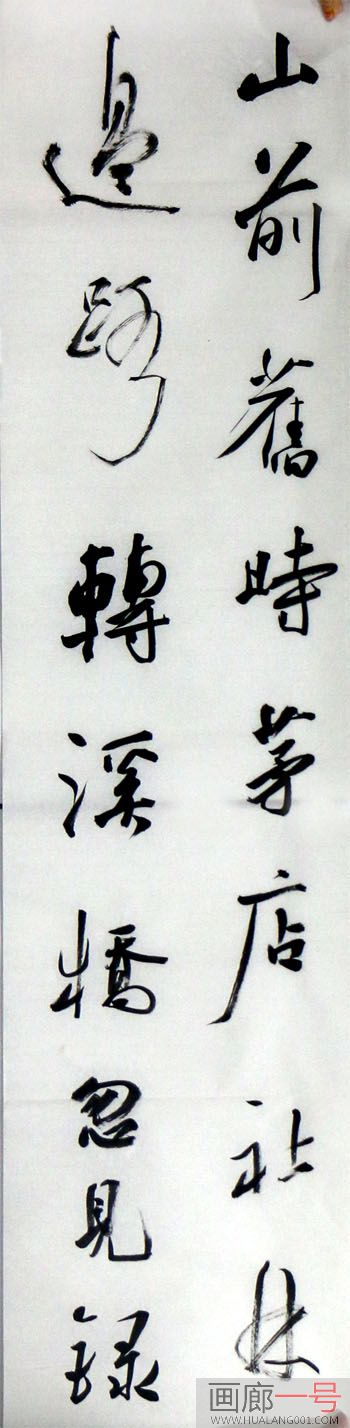 山前舊時茅店社林
邊路轉溪橋忽見録
画廊一号
WWW.HUALANG001.COM